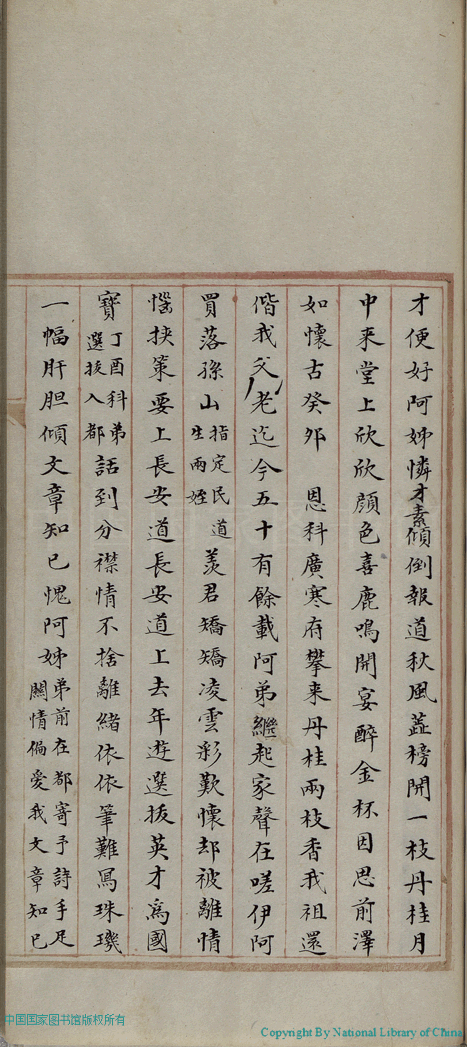 才便好阿姊憐才素傾倒報道秋風蕊榜開一枝丹桂月
中来堂上欣欣顏色喜鹿鳴開宴醉金杯因思前澤
如懷古癸夘 恩科廣寒府攀来丹桂兩枝香我祖還
偕我父老迄今五十有餘載阿弟繼起家聲在嗟伊阿
買落孫山指定民道生兩姪羨君矯矯凌雲彩歎懷却被離情
惱挾策要上長安道長安道上去年遊選拔英才為國
寶丁酉科弟選拔入都話到分襟情不捨離緒依依筆難寫珠璣
一幅肝胆傾文章知己愧阿姊弟前在都寄予詩手足關情偏愛我文章知己
中国国家图书馆版权所有
Copyright By National Library of China